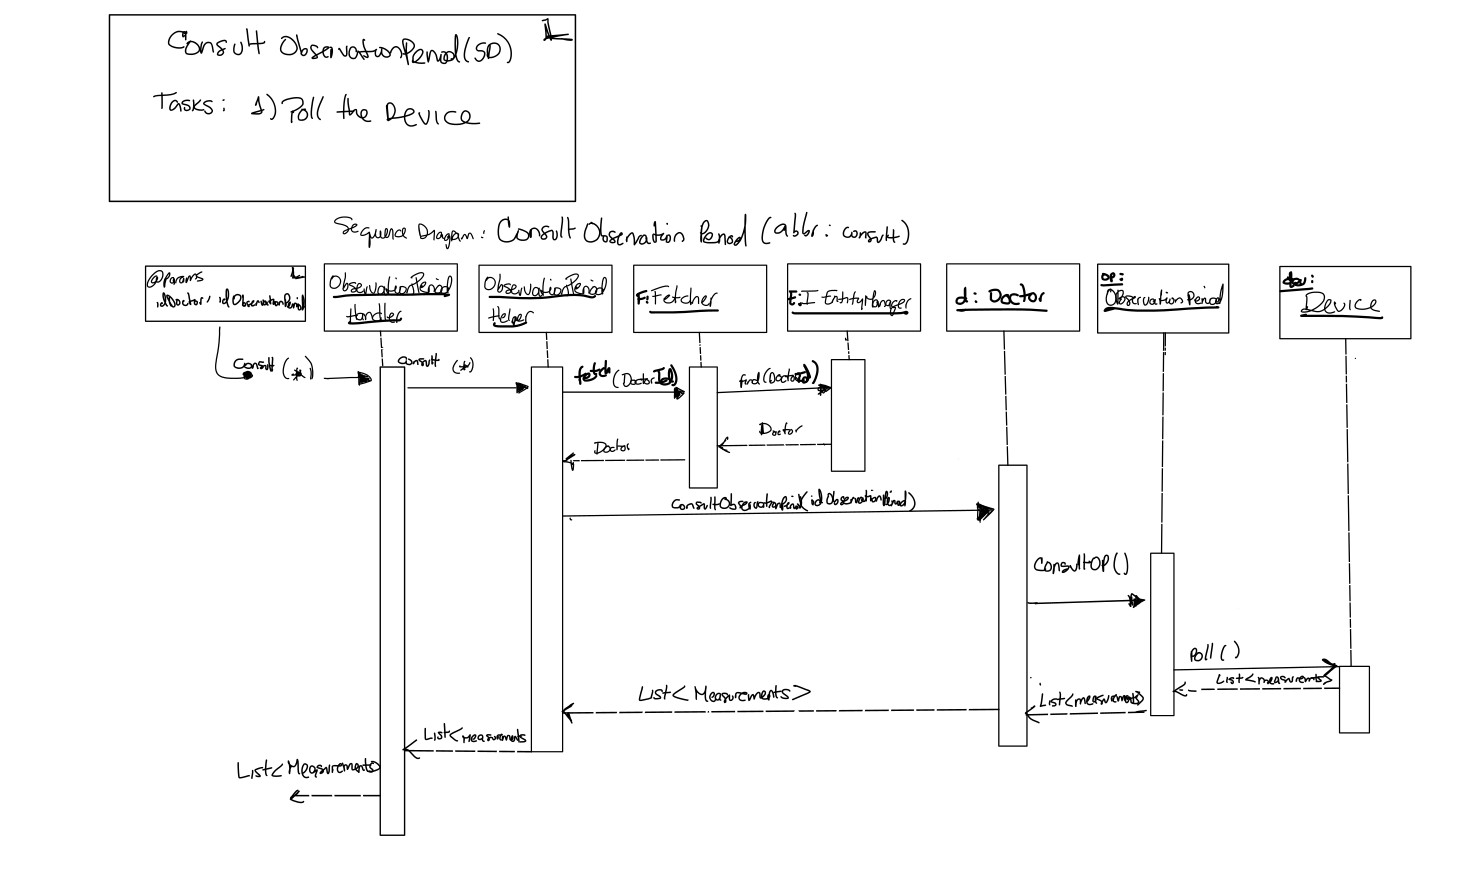 Consult ObservationPeriod(SD)
Tasks: 1) Poll the Device
Sequence Diagram: Consult Observation Period (abbr: consult)
@params
idDoctor, idObservationPeriod
ObservationPeriod
Handler
ObservationPeriod
Helper
F:Fetcher
E:IEntityManager
d: Doctor
OP:
ObservationPeriod
dev:
Device
Consult (*)
consult (*)
fetch (DoctorId)
find(DoctorId)
Doctor
Doctor
ConsultObservationPeriod(idObservationPeriod)
ConsultOP()
Poll()
List<measurements>
List<measurements>
List<Measurements>
List<Measurements
List<Measurements>